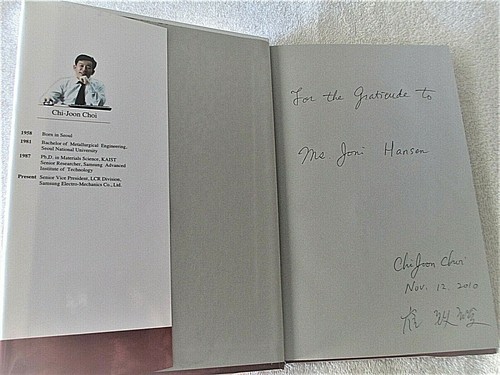 Chi-Joon Choi
1958 Born in Seoul
1981 Bachelor of Metallurgical Engineering,
Seoul National University
1987 Ph.D. in Materials Science, KAIST
Senior Researcher, Samsung Advanced
Institute of Technology
Present Senior Vice President, LCR Division,
Samsung Electro-Mechanics Co., Ltd.
For the Gratitude to
Ms Joni Hansen
Chi Joon Choi
Nov. 12. 2010
崔